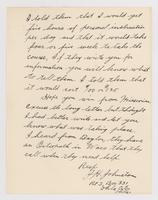 I told them that I would get
five hours of personal instruction
per day and that it would take
four or five weeks to take the
course. If they write you for
information you will know what
to tell them. I told them that
it would cost
Hope you win from
Excuse the long letter but thought
I had better write and let you
know what was taking place.
I heard from Dayton, they have
an Osteopath in Waco that they
call when they need help.
Resp.
J.H. Johnston